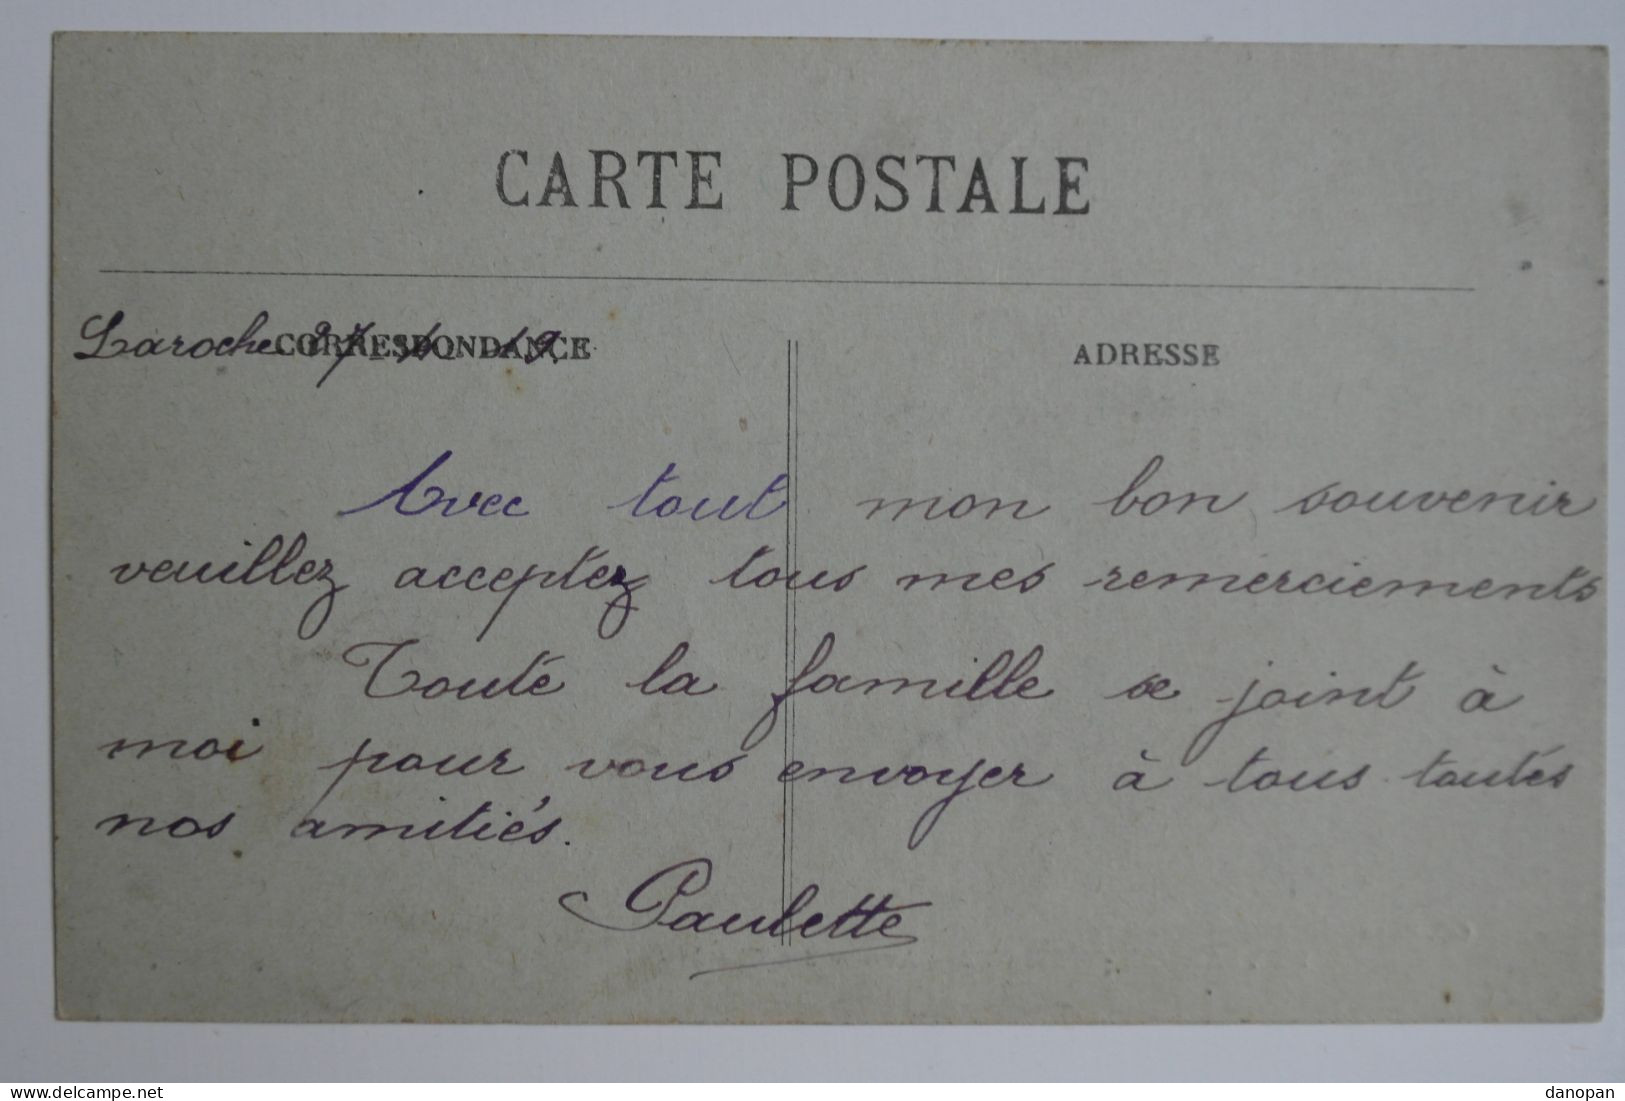 CARTE POSTALE
Laroche CORRESPONDANCE
ADRESSE
Avec tout mon bon souvenir
veuillez acceptez tous mes remerciements
Touté la famille se joint à
moi pour vous envoyer à tous toutés
nos amitiés.
Paulette
www.delcampe.net
danopan